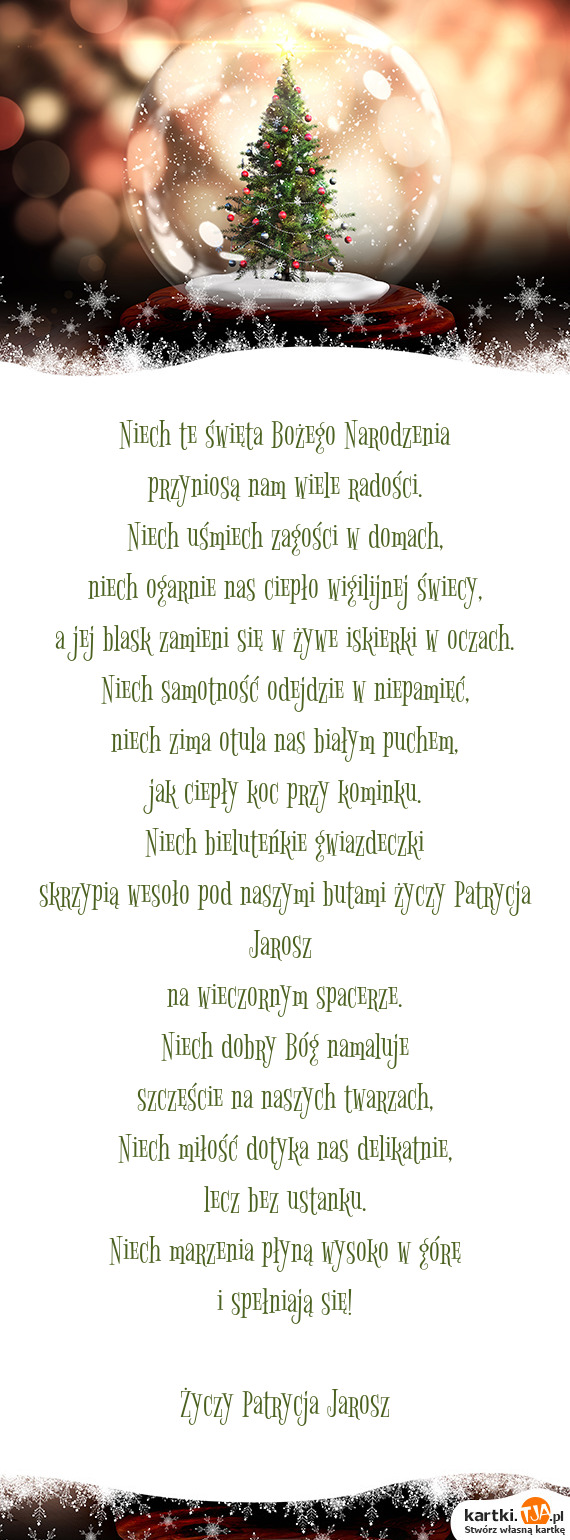 Niech te święta Bożego Narodzenia
przyniosą nam wiele radości.
Niech uśmiech zagości w domach,
niech ogarnie nas ciepło wigilijnej świecy,
a jej blask zamieni się w żywe iskierki w oczach.
Niech samotność odejdzie w niepamięć,
niech zima otula nas białym puchem,
jak ciepły koc przy kominku.
Niech bieluteńkie gwiazdeczki
skrzypią wesoło pod naszymi butami życzy Patrycja
Jarosz
na wieczornym spacerze.
Niech dobry Bóg namaluje
szczęście na naszych twarzach,
Niech miłość dotyka nas delikatnie,
lecz bez ustanku.
Niech marzenia płyną wysoko w górę
i spełniają się!
Życzy Patrycja Jarosz
kartki.TJA.pl
Stwórz własną kartkę